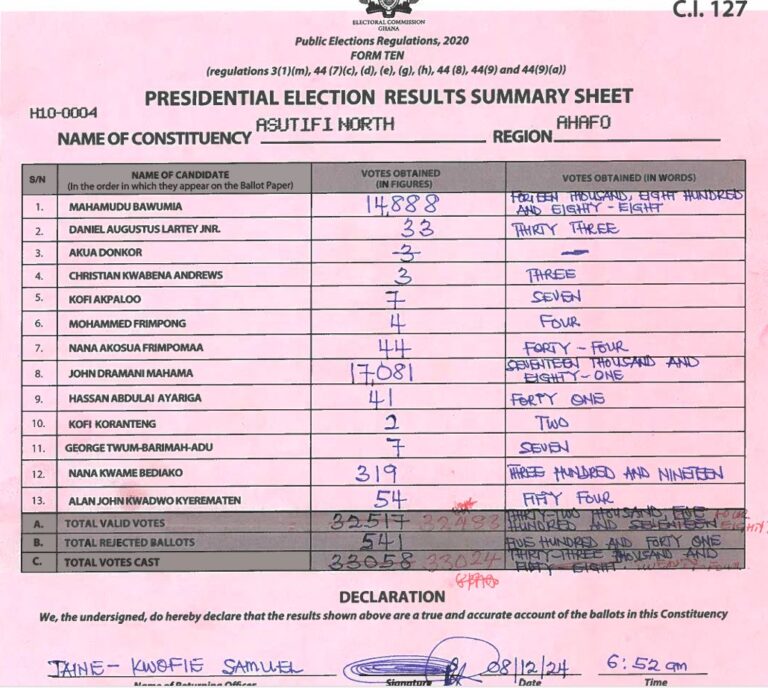 C.I. 127
ELECTORAL COMMISSION
GHANA
Public Elections Regulations, 2020
FORM TEN
(regulations 3(1)(m), 44 (7)(c), (d), (e), (g), (h), 44 (8), 44(9) and 44(9)(a))
PRESIDENTIAL ELECTION RESULTS SUMMARY SHEET
H10-0004
NAME OF CONSTITUENCY ASUTIFI NORTH REGION AHAFO
S/N NAME OF CANDIDATE (In the order in which they appear on the Ballot Paper) VOTES OBTAINED (IN FIGURES) VOTES OBTAINED (IN WORDS)
1. MAHAMUDU BAWUMIA 14,888 THOUSAND, EIGHT HUNDRED
AND EIGHTY-EIGHT
2. DANIEL AUGUSTUS LARTEY JNR. 33 THIRTY THREE
3. AKUA DONKOR -3- —
4. CHRISTIAN KWABENA ANDREWS 3 THREE
5. KOFI AKPALOO 7 SEVEN
6. MOHAMMED FRIMPONG 4 FOUR
7. NANA AKOSUA FRIMPOMAA 44 FORTY-FOUR
8. JOHN DRAMANI MAHAMA 17,081 SEVENTEEN THOUSAND AND
EIGHTY-ONE
9. HASSAN ABDULAI AYARIGA 41 FORTY ONE
10. KOFI KORANTENG 2 TWO
11. GEORGE TWUM-BARIMAH-ADU 7 SEVEN
12. NANA KWAME BEDIAKO 319 THREE HUNDRED AND NINETEEN
13. ALAN JOHN KWADWO KYEREMATEN 54 FIFTY FOUR
A. TOTAL VALID VOTES 32517 32483 THIRTY-TWO THOUSAND, FIVE FOUR
HUNDRED AND SEVENTEEN EIGHTY
B. TOTAL REJECTED BALLOTS 541 FIVE HUNDRED AND FORTY ONE
C. TOTAL VOTES CAST 33058 33024 THIRTY-THREE THOUSAND AND
FIFTY-EIGHT
DECLARATION
We, the undersigned, do hereby declare that the results shown above are a true and accurate account of the ballots in this Constituency
JAINE-KWOFIE SAMUEL 08/12/24 6:52 am
Name of Returning Officer Signature Date Time